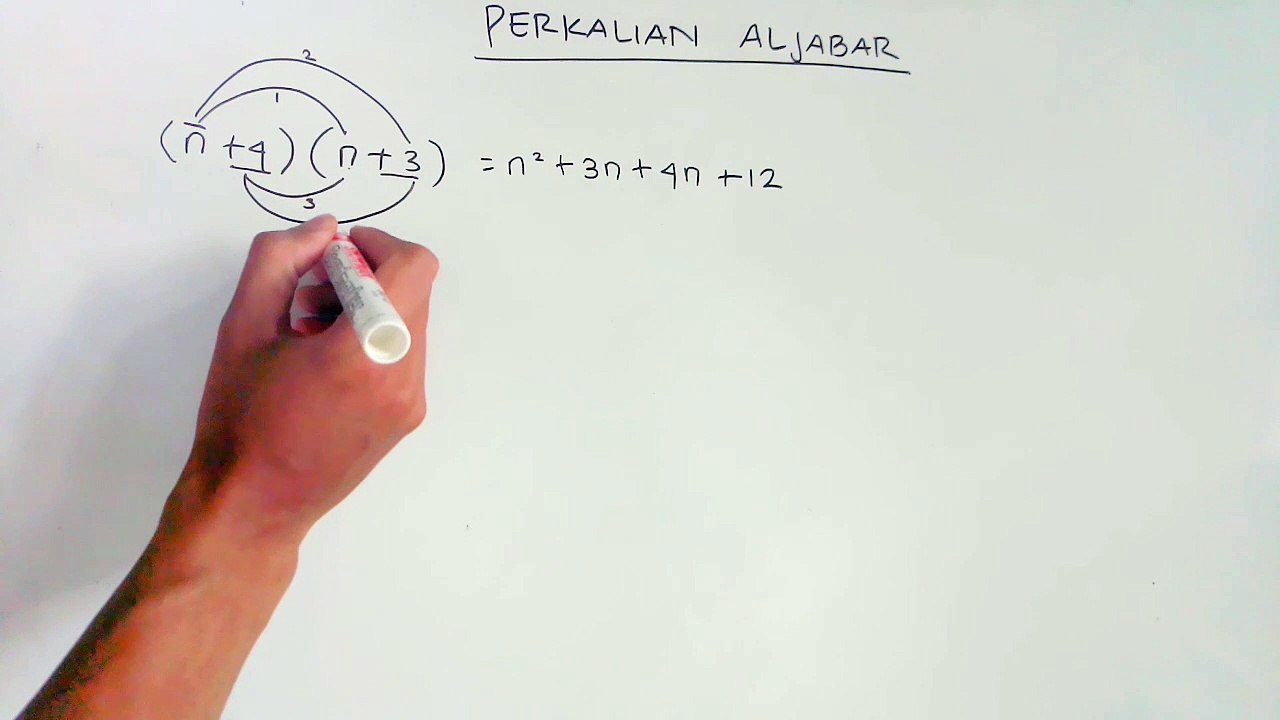 PERKALIAN ALJABAR
2
1
(n + 4) (n + 3) = n² + 3n + 4n + 12
3